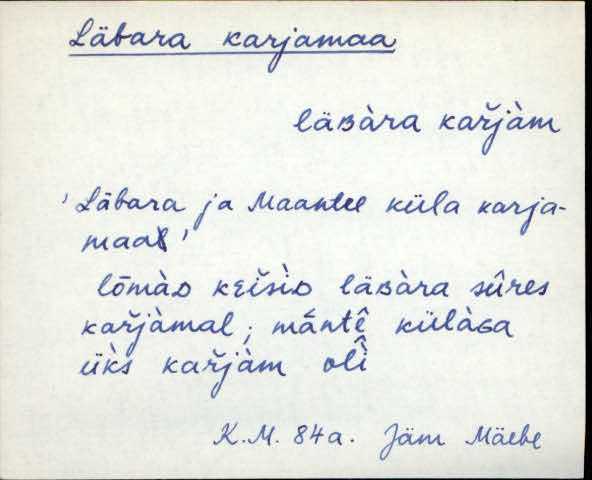 Läbara karjamaa
läʙàra kařjàm
'Läbara ja Maantee küla karja-
maa'
lōmàᴅ keišìᴅ läʙàra sûres
kařjàmal; mántê külàɢa
ük̀s kařjàm olî
K.M. 84a. Jäm Mäebe